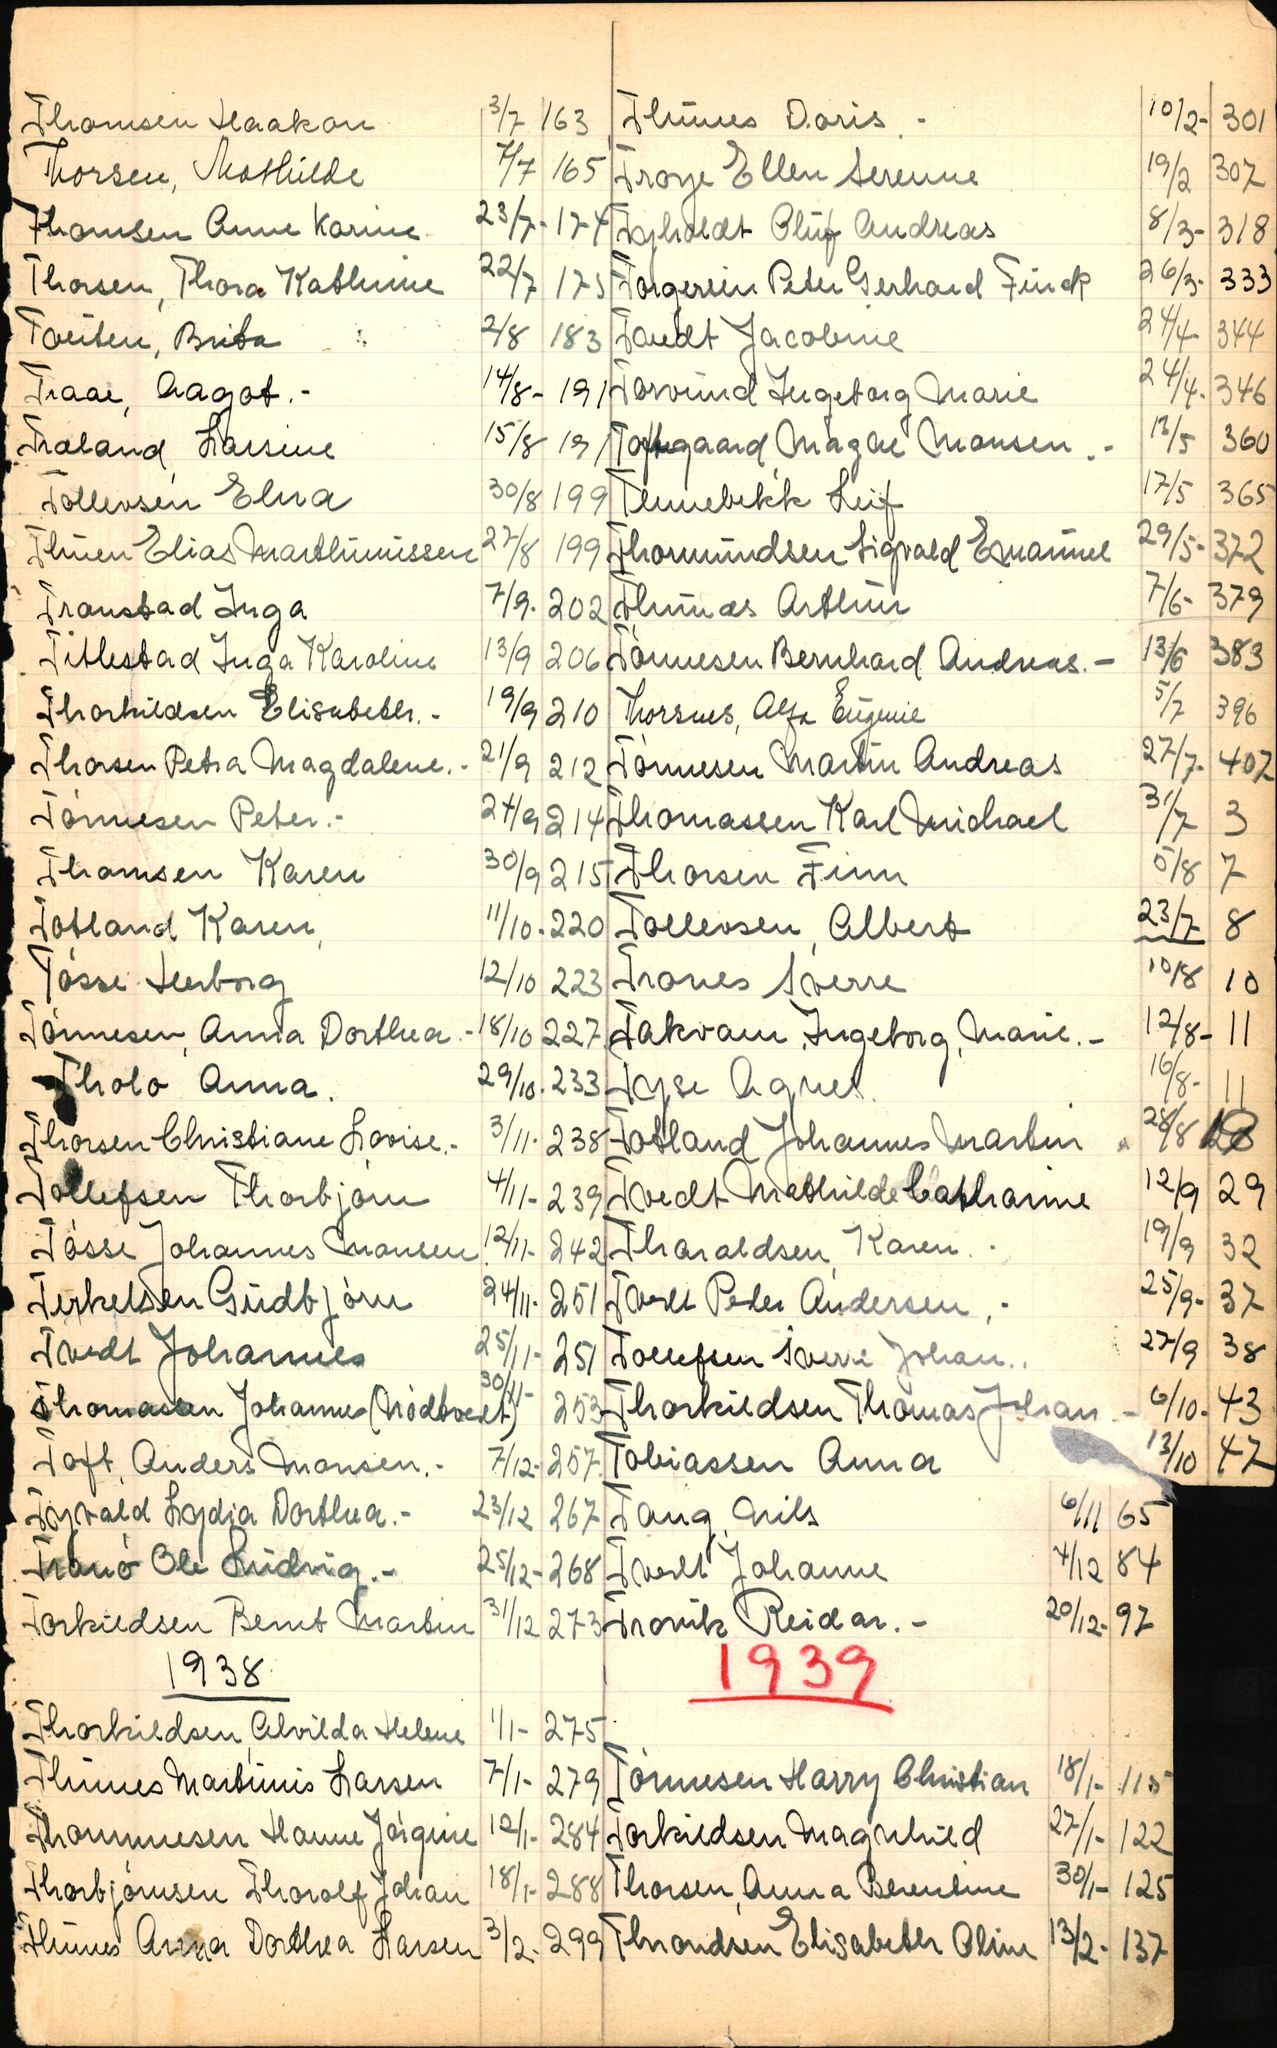 Thomsen Haakon 3/7 163
Thorsen, Mathilde 7/7 165
Thomsen Anne Karine 23/7- 174
Thorsen, Thora Kathrine 22/7 175
Tveiten, Brita 2/8 183
Traae, Aagot.- 14/8- 191
Træland, Larsine 15/8 191
Tollevsen Elna 30/8 199
Thuen Elias Marthinussen 27/8 199
Tronstad Inga 7/9- 202
Titlestad Inga Karoline 13/9 206
Thorkildsen Elisabeth.- 19/9 210
Thorsen Petra Magdalene.- 21/9 212
Tönnesen Peter.- 24/9 214
Thomsen Karen 30/9 215
Totland Karen, 11/10- 220
Tösse Herborg 12/10 223
Tönnesen, Anna Dorthea.- 18/10 227
Tholo Anna. 29/10- 233
Thorsen Christiane Lovise.- 3/11- 238
Tollefsen Thorbjörn 4/11- 239
Tösse Johannes Monsen 12/11- 242
Terkelsen Gudbjörn 24/11- 251
Tvedt Johannes 25/11- 251
Thomassen Johanne (Nödtvedt) 30/11- 253
Toft, Anders Monsen.- 7/12- 257
Toyvald Lydia Dorthea.- 23/12 267
Tranö Ole Ludvig.- 25/12- 268
Torkildsen Bernt Martin 31/12 273
1938
Thorkildsen, Alvilda Helene 1/1- 275
Thunes Martinus Larsen 7/1- 279
Thommesen Hanne Jörgine 12/1- 284
Thorbjörnsen Thorolf Johan 18/1- 288
Thunes Anna Dorthea Larsen 3/2- 299
Thunes Doris.- 10/2- 301
Troye Ellen Serenne 19/2 307
Tyholdt Oluf Andreas 8/3- 318
Torgersen Peter Gerhard Finck 26/3- 333
Tvedt Jacobine 24/4- 344
Torvund Ingeborg Marie 24/4- 346
Toftegaard Magne Monsen.- 13/5 360
Tennebekk Leif 17/5 365
Thormundsen Sigvald Emanuel 29/5- 372
Thunæs Arthur 7/6- 379
Tönnesen Bernhard Andreas.- 13/6 383
Thorsnes, Alfa Eugenie 5/7 396
Tönnesen Martin Andreas 27/7- 407
Thomassen Karl Michael 31/7 3
Thorsen Finn 5/8 7
Tollevsen, Albert 23/7 8
Trones Sverre 10/8 10
Takvam, Ingeborg, Marie.- 12/8- 11
Tyse Agnes. 16/8- 11
Totland Johannes Martin 28/8
Tvedt Mathilde Catharine 12/9 29
Tharaldsen, Karen.- 19/9 32
Tvedt Peder Andersen.- 25/9- 37
Tollefsen Sverre Johan.. 27/9 38
Thorkildsen Thomas Johan.- 6/10- 43
Tobiassen Anna 13/10 47
Tang, Nils 6/11 65
Tvedt Johanne 4/12 84
Trovik Reidar.- 20/12- 97
1939
Tönnesen Harry Christian 18/1- 115
Torkildsen Magnhild 27/1- 122
Thorsen, Anna Berentine 30/1- 125
Throndsen Elisabeth Oline 13/2- 137